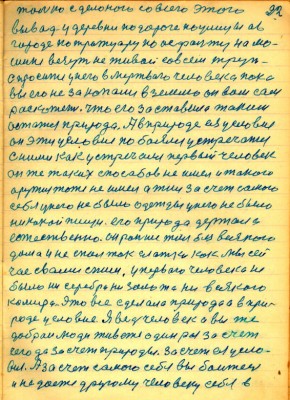 22
только сделоного со всего этого
вывад. у деревни по дороге по улицы а в
городе по тратуару по асфалту на ма-
шини везут не живой совсем труп.
спросити у него в мертвого человека пока
вы его не закопали в землю он вам сам
раскажет. что его заставила таким
остатся природа. А в природе ез условия
он эти условия по боялся встречатся
с ними как встречался первый человек
он же таких способов не имел и такого
другим тоже не имел а жил за счет самого
себя у него не было одежды у него не было
никакой пищи. его природа держала
естественно. он раньше жил без всякого
дома и не спал так сладко как мы сей
час свами спим, у первого человека не
было ни серебра ни золота ни всякого
камира. Это все сделала природа а в при-
роде условие. Я ведь человек а вы же
добраи люди живете один раз за счет
чего да за счет природы. за счет ея усло-
вий. А за счет самого себя вы боитесь
и не даете другому человеку себя в